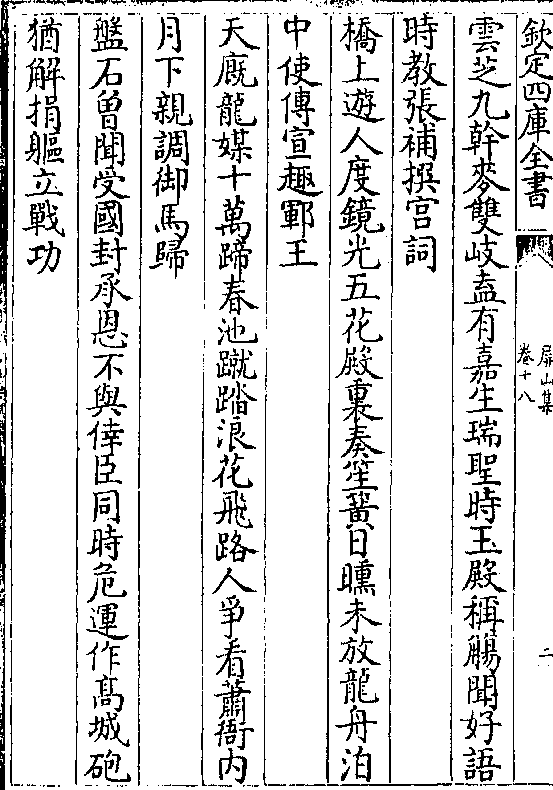 欽定四庫全書
屏山集
卷十八
二
雲芝九幹麥雙岐盍有嘉生瑞聖時玉殿稱觴聞好語
時教張補撰宫詞
橋上遊人度鏡光五花殿裏奏笙簧日曛未放龍舟泊
中使傳宣趣鄆王
天廐龍媒十萬蹄春池蹴踏浪花飛路人爭看蕭衙内
月下親調御馬歸
盤石曾聞受國封承恩不與倖臣同時危運作髙城砲
猶解捐軀立戰功